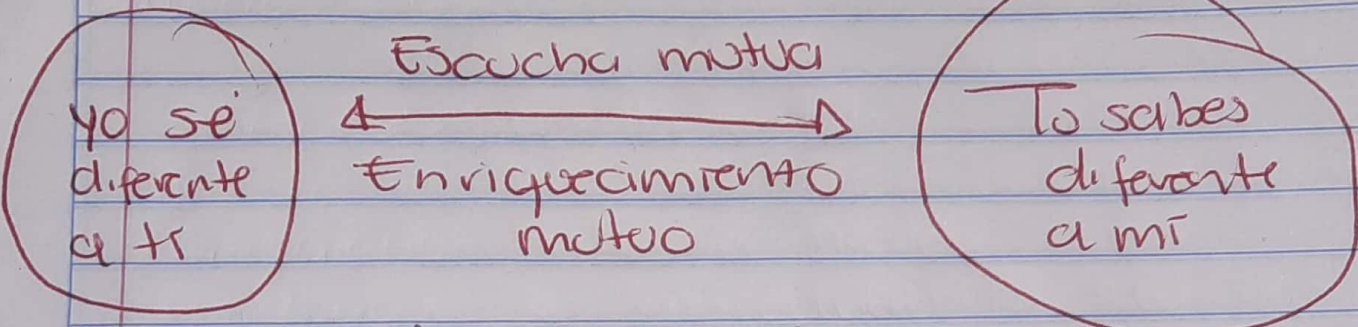 yo sé
diferente
a ti
Escucha mutua
Enriquecimiento
mutuo
Tú sabes
diferente
a mí